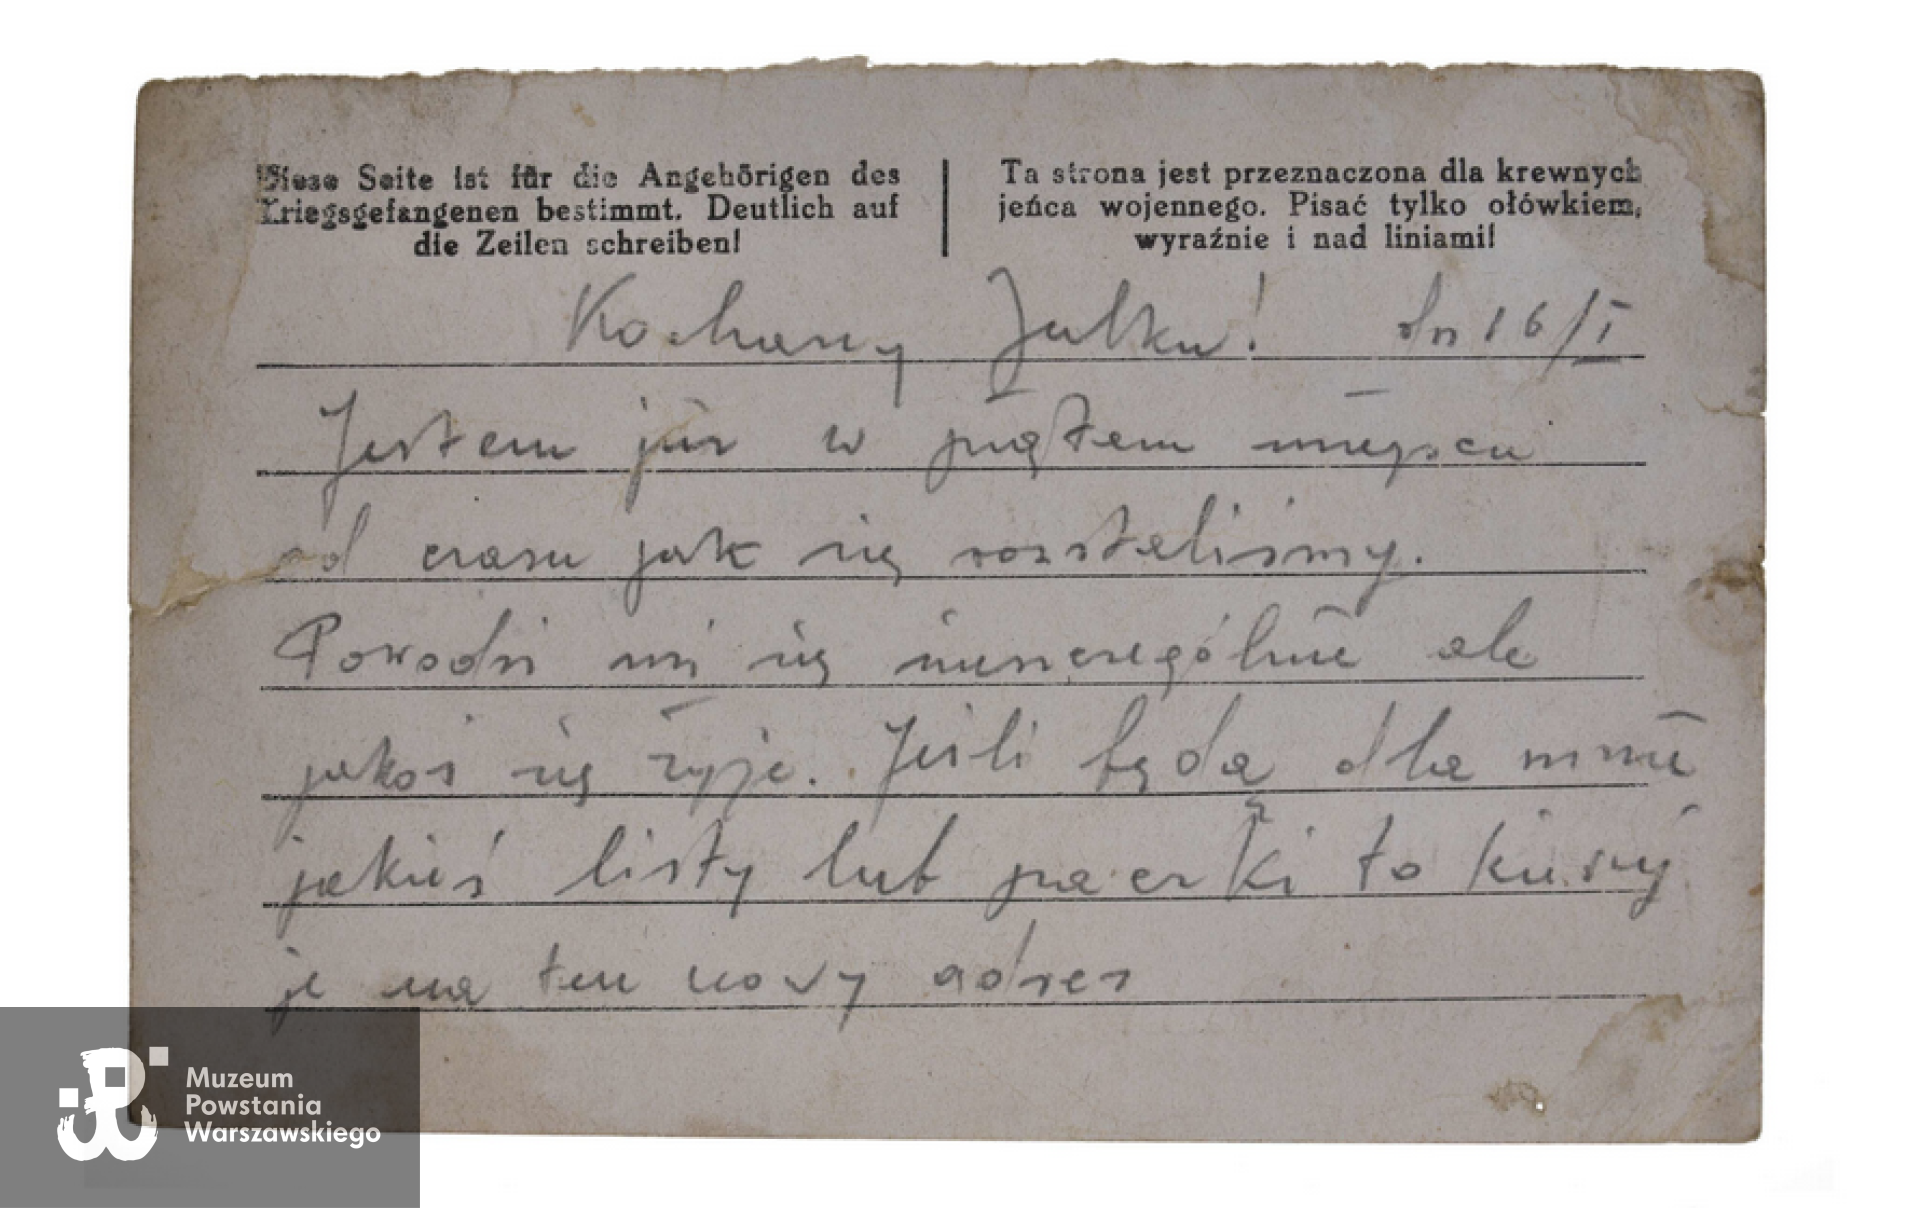 Diese Seite ist für die Angehörigen des
Kriegsgefangenen bestimmt. Deutlich auf
die Zeilen schreiben!
Ta strona jest przeznaczona dla krewnych
jeńca wojennego. Pisać tylko ołówkiem,
wyraźnie i nad liniami!
Kochany Julku! dn 16/I
Jestem już w piątem miejscu
od czasu jak się rozstaliśmy.
Powodzi mi się nieszczególnie ale
jakoś się żyje. Jeśli będą dla mnie
jakieś listy lub paczki to kieruj
je na ten nowy adres
Muzeum
Powstania
Warszawskiego